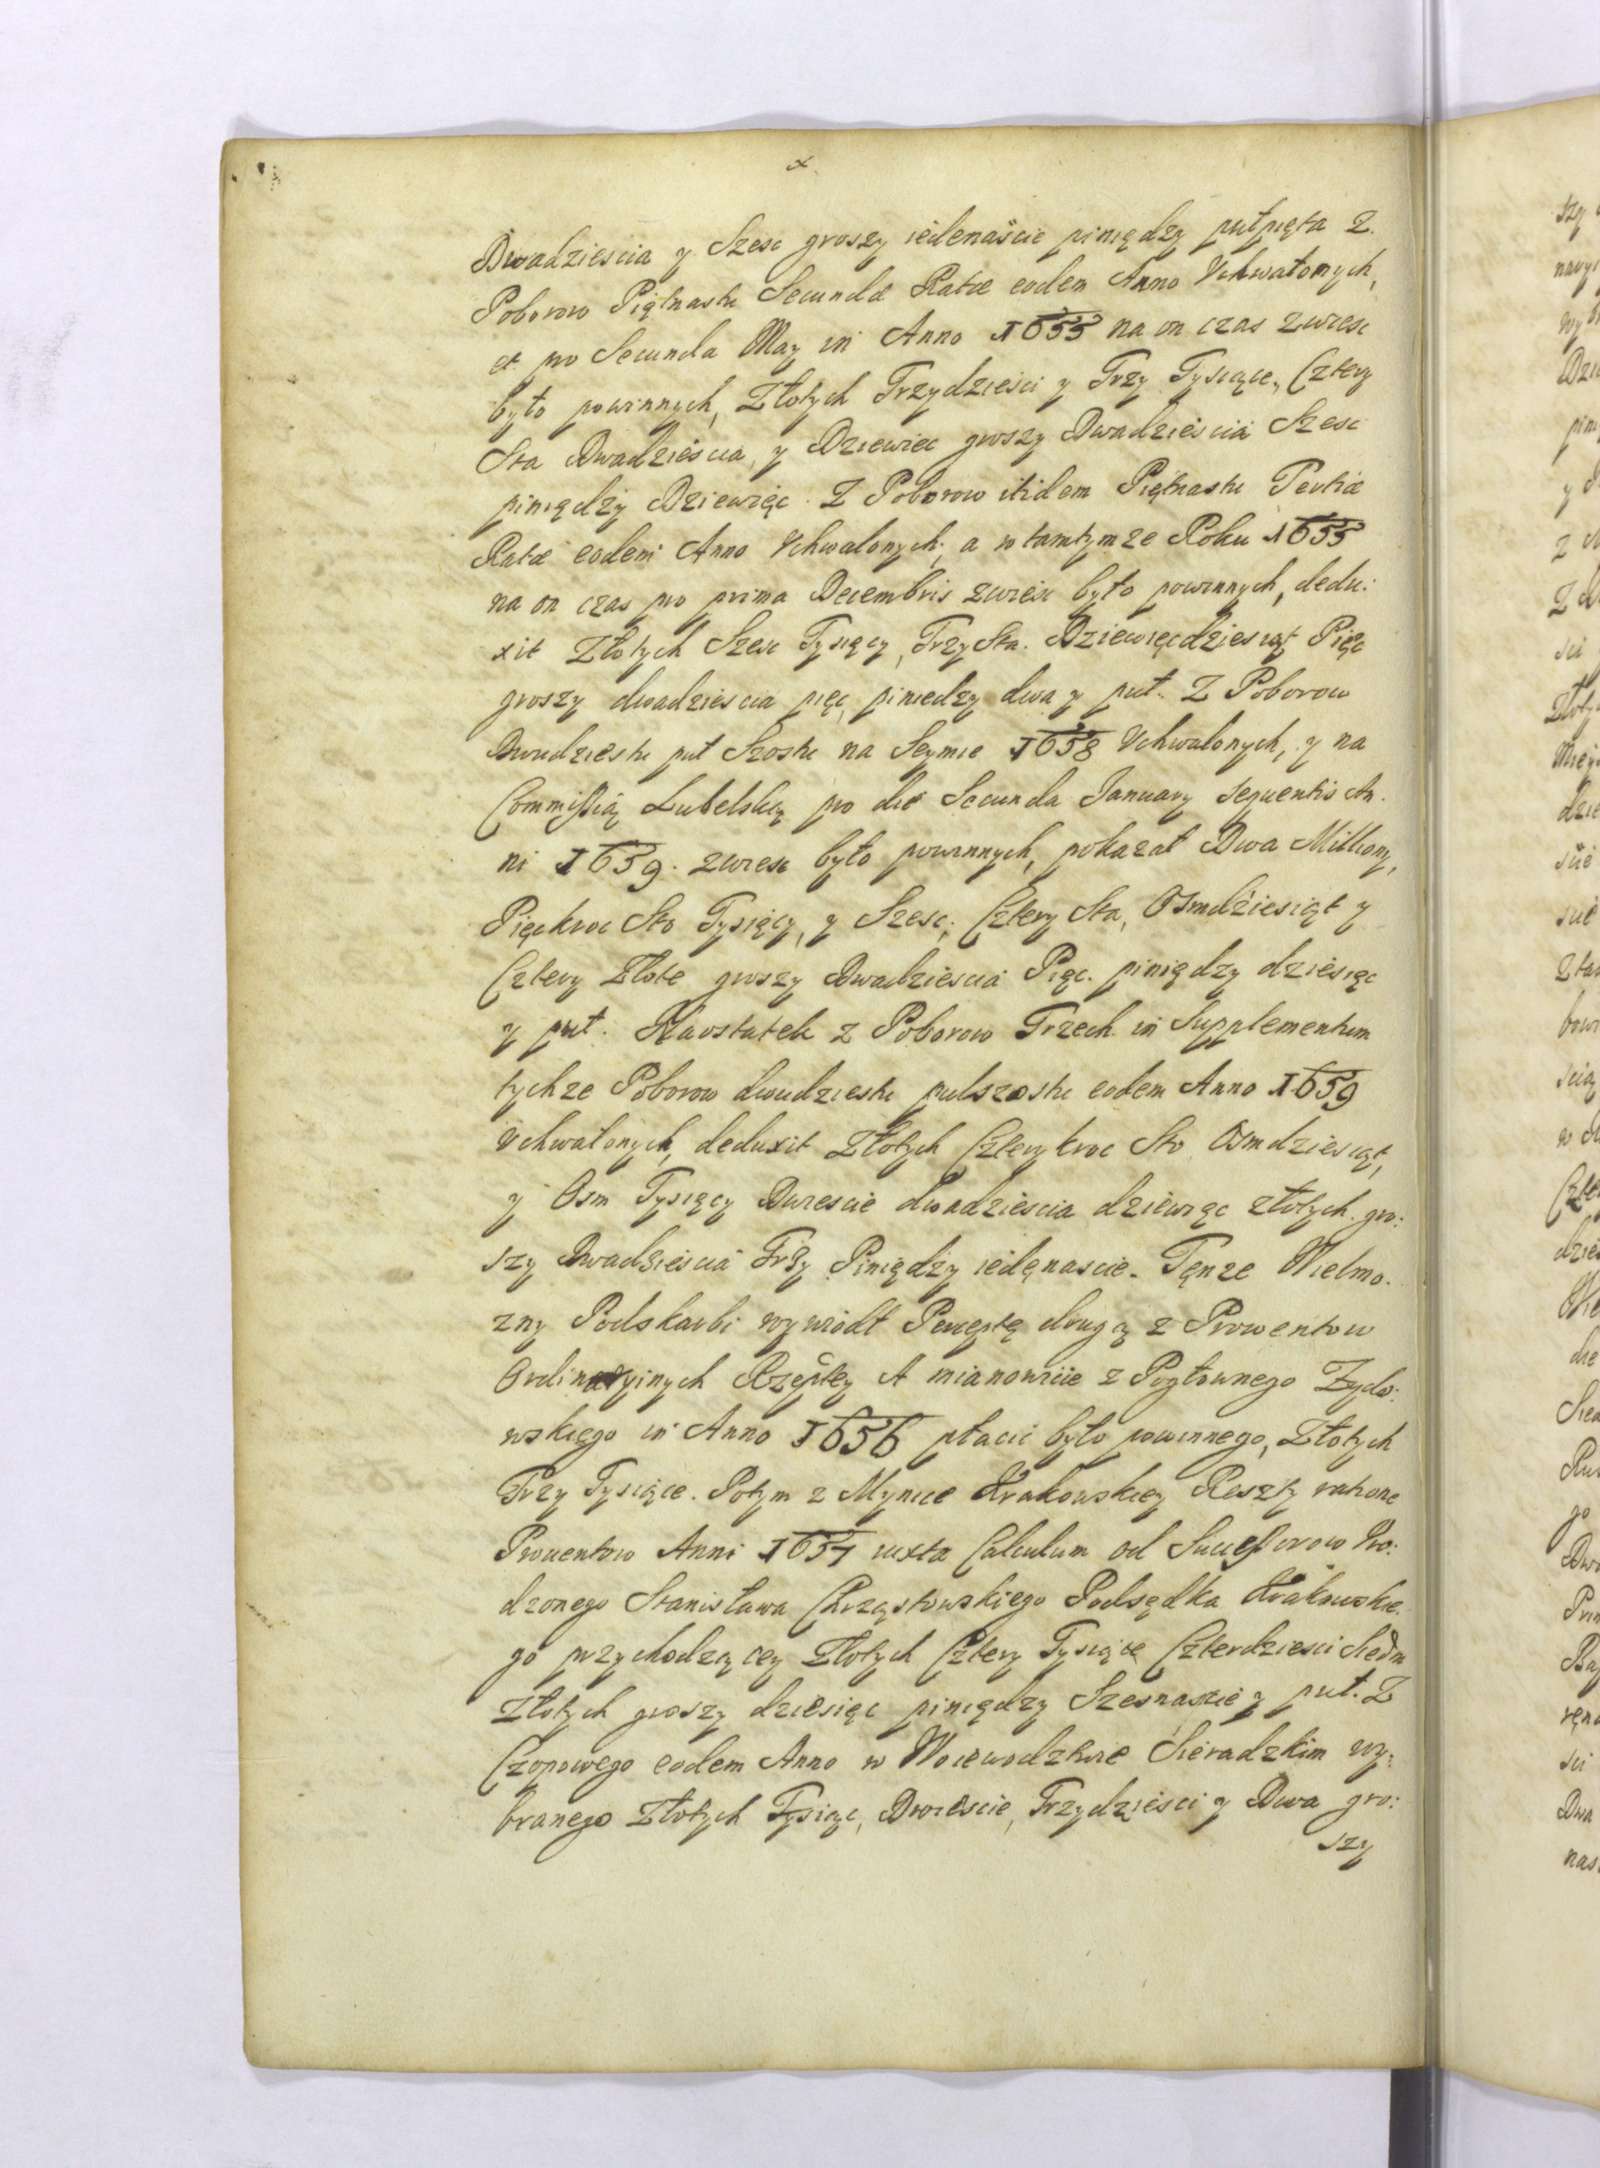 Dwadziescia y Szesc groszy iedenaście piniędzy putpięta Z.
Poborow Piętnastu Secundæ Ratæ eodem Anno Vchwalonych,
et pro Secunda May in Anno 1655 na on czas zwiesc
było powinnych, Złotych Trzydzieści y Trzy Tysiące, Cztery
Sta Dwadzieścia, y Dziewiec groszy Dwadzieścia Szesc
piniędzy Dziewięc. Z Poborow itidem Piętnastu Tertiæ
Ratæ eodem Anno Vchwalonych, a w tamtymze Roku 1655
na on czas pro prima Decembris zwiesc było powinnych, dedu:
xit Złotych Szesc Tysięcy, Trzy Sta. Dziewięcdziesiąt Pięc
groszy dwadziescia pięc, piniedzy dwa y put. Z Poborow
Dwudziestu put Szostu na Seymie 1658 Vchwalonych, y na
Commissią Lubelską pro die Secunda January sequentis An.
ni 1659. zwiesc było powinnych, pokazał Dwa Milliony,
Pięckroc Sto Tysięcy, y Szesc, Cztery Sta, Osmdziesiąt y
Cztery Złote groszy Dwadziescia Pięc. piniędzy dziesięc
y put. Naostatek z Poborow Trzech in Supplementum
tychze Poborow dwudziestu pulszostu eodem Anno 1659
Vchwalonych, deduxit Złotych Czterykroc Sto Osmdziesiąt,
y Osm Tysięcy Dwiescie dwadziescia dziewięc złotych. gro:
szy Dwadzieścia Trzy Piniędzy iedęnascie. Tęnze Wielmo.
zny Podskarbi wywiodł Perceptę drugą z Prowentow
Ordinaryinych Rzeptey A mianowicie z Pogłownego Zydo:
wskięgo in Anno 1656 płacic było powinnego, Złotych
Trzy Tysiące. Potym z Mynice Krakowskiey Reszty ratione
Prouentow Anni 1657 iuxta Calculum od Sucessorow Vro:
dzonego Stanisława Chrząstowskiego Podsędka Krakowskie.
go przychodzącey Złotych Cztery Tysiące Czterdziesci Siedm
Złotych groszy dziesięc piniędzy Szesnascie y put. Z
Czopowego eodem Anno w Woiewodztwie Sieradzkim wy:
branego Złotych Tysiąc, Dwieście, Trzydzieści y Dwa gro:
szy